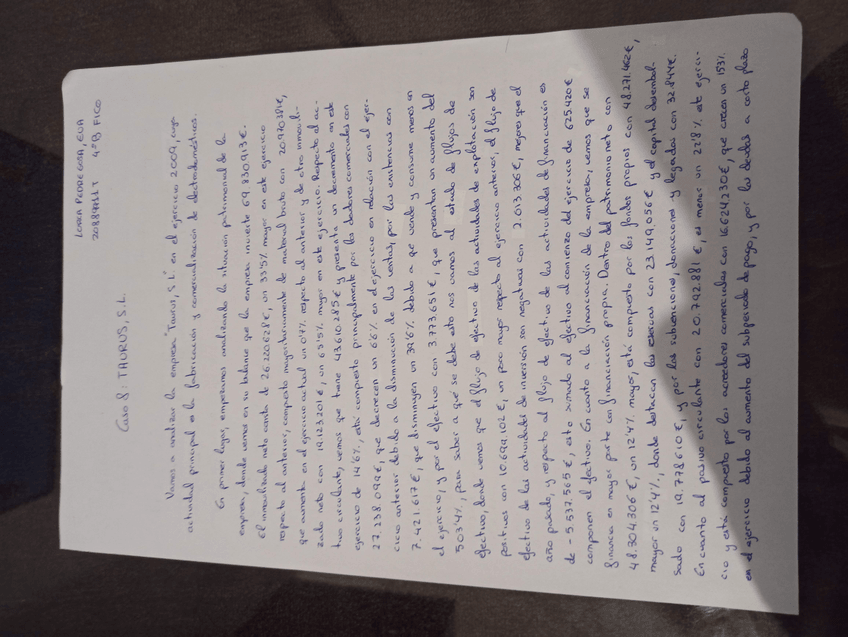 LORCA PEDREGOSA, EVA
4ºB FICO
Caso 8: TAURUS, S.L.
Vamos a analizar la empresa "Taurus, S.L." en el ejercicio 2009, cuya
actividad principal es la fabricación y comercialización de electrodomésticos.
En primer lugar, empezamos analizando la situación patrimonial de la
empresa, donde vemos en su balance que la empresa invierte 69.830.913 €.
El inmovilizado neto consta de 26.220.628 €, un 33'5% mayor en este ejercicio
respecto al anterior, compuesto mayoritariamente de material bruto con 20.970.381 €,
que aumenta en el ejercicio actual un 0'7% respecto al anterior y de otro inmovili-
zado neto con 19.123.201 €, un 63'5% mayor en este ejercicio. Respecto al ac-
tivo circulante, vemos que tiene 43.610.285 € y presenta un decremento en este
ejercicio de 14'6%, está compuesto principalmente por los deudores comerciales con
27.238.099 €, que decrecen un 6'6% en el ejercicio en relación con el ejer-
cicio anterior debido a la disminución de las ventas, por las existencias con
7.421.617 €, que disminuyen un 39'6% debido a que vende y consume menos en
el ejercicio, y por el efectivo con 3.773.651 €, que presentan un aumento del
503'4%, para saber a qué se debe esto nos vamos al estado de flujos de
efectivo, donde vemos que el flujo de efectivo de las actividades de explotación son
positivos con 10.694.102 €, un poco mayor respecto al ejercicio anterior, el flujo de
efectivo de las actividades de inversión son negativas con 2.013.306 €, mejores que el
año pasado, y respecto al flujo de efectivo de las actividades de financiación es
de -5.537.565 €, esto sumado al efectivo al comienzo del ejercicio de 625.420 €
componen el efectivo. En cuanto a la financiación de la empresa, vemos que se
financia en mayor parte con financiación propia. Dentro del patrimonio neto con
48.304.306 €, un 12'4% mayor, está compuesto por los fondos propios con 48.271.462 €,
mayor un 12'4%, donde destacan las reservas con 23.149.056 € y el capital desembol-
sado con 19.778.610 €, y por las subvenciones, donaciones y legados con 32.844 €.
En cuanto al pasivo circulante con 20.792.881 €, es menor un 22'8% este ejerci-
cio y está compuesto por los acreedores comerciales con 16.624.230 €, que crecen un 153%
en el ejercicio debido al aumento del subperiodo de pago, y por las deudas a corto plazo